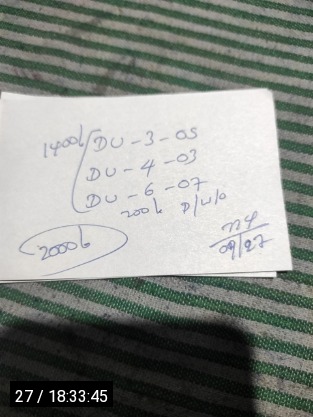 1400/- DU-3-05
DU-4-03
DU-6-07
200/-
2000/-
09/27
27 / 18:33:45